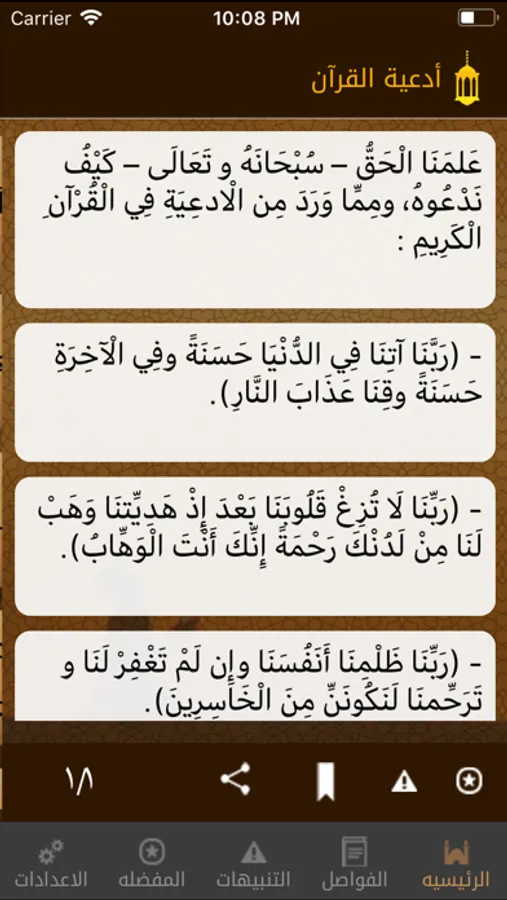 Carrier 10:08 PM
أدعية القرآن
عَلمَنَا الْحَقُّ – سُبْحَانَهُ و تَعَالَى – كَيْفُ
نَدْعُوهُ، ومِمِّا وَرَدَ مِن الْادعِيَةِ فِي الْقُرْآنِ
الْكَرِيمِ :
- (رَبَّنَا آتِنَا فِي الدُّنْيَا حَسَنَةً وفِي الْآخِرَةِ
حَسَنَةً وقِنَا عَذَابَ النَّارِ).
- (رَبِّنَا لَا تُزِغْ قَلُوبَنَا بَعْدَ إِذْ هَدِيِّتنَا وَهَبْ
لَنَا مِنْ لَدُنْكَ رَحْمَةً إِنِّكَ أَنْتَ الْوَهِّابُ).
- (رَبِّنَا ظَلْمِنَا أَنَفُسَنَا وإِن لَمْ تَغْفِرْ لَنَا و
تَرَحِّمنَا لَنَكُونَنِّ مِنَ الْخَاسِرِينَ).
١/٨
الرئيسيه
الفواصل
التنبيهات
المفضله
الاعدادات